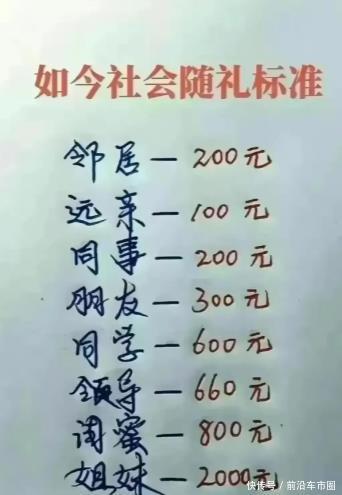 如今社会随礼标准
邻居—200元
远亲—100元
同事—200元
朋友—300元
同学—600元
领导—660元
闺蜜—800元
姐妹—2000元
快传号／前沿车市圈